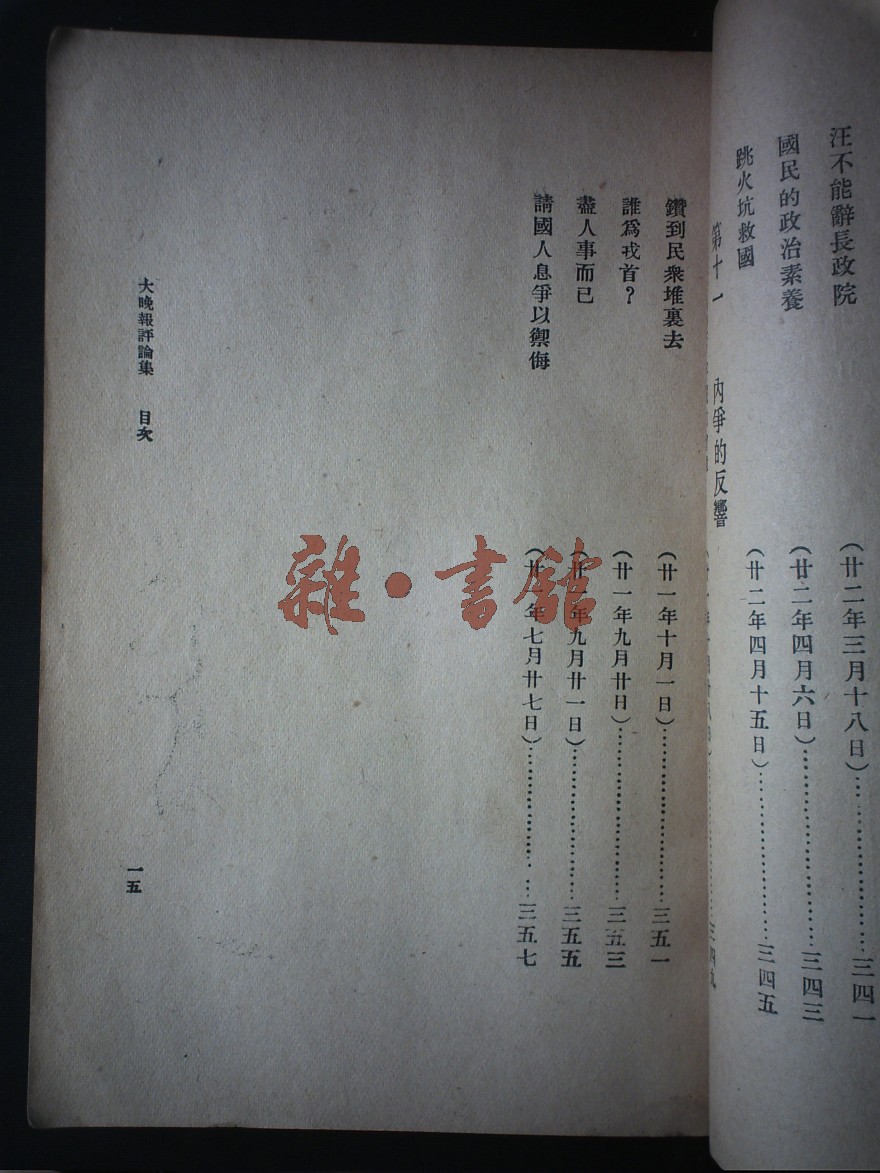 汪不能辭長政院(廿二年三月十八日)…三四一
國民的政治素養(廿二年四月六日)…三四三
跳火坑救國(廿二年四月十五日)…三四五
第十一 內爭的反響
鑽到民衆堆裏去(廿一年十月一日)…三五一
誰爲戎首?(廿一年九月廿日)…三五三
盡人事而已(廿一年九月廿一日)…三五五
請國人息爭以禦侮(廿一年七月廿七日)…三五七
大晚報評論集 目次
一五
雜·書館